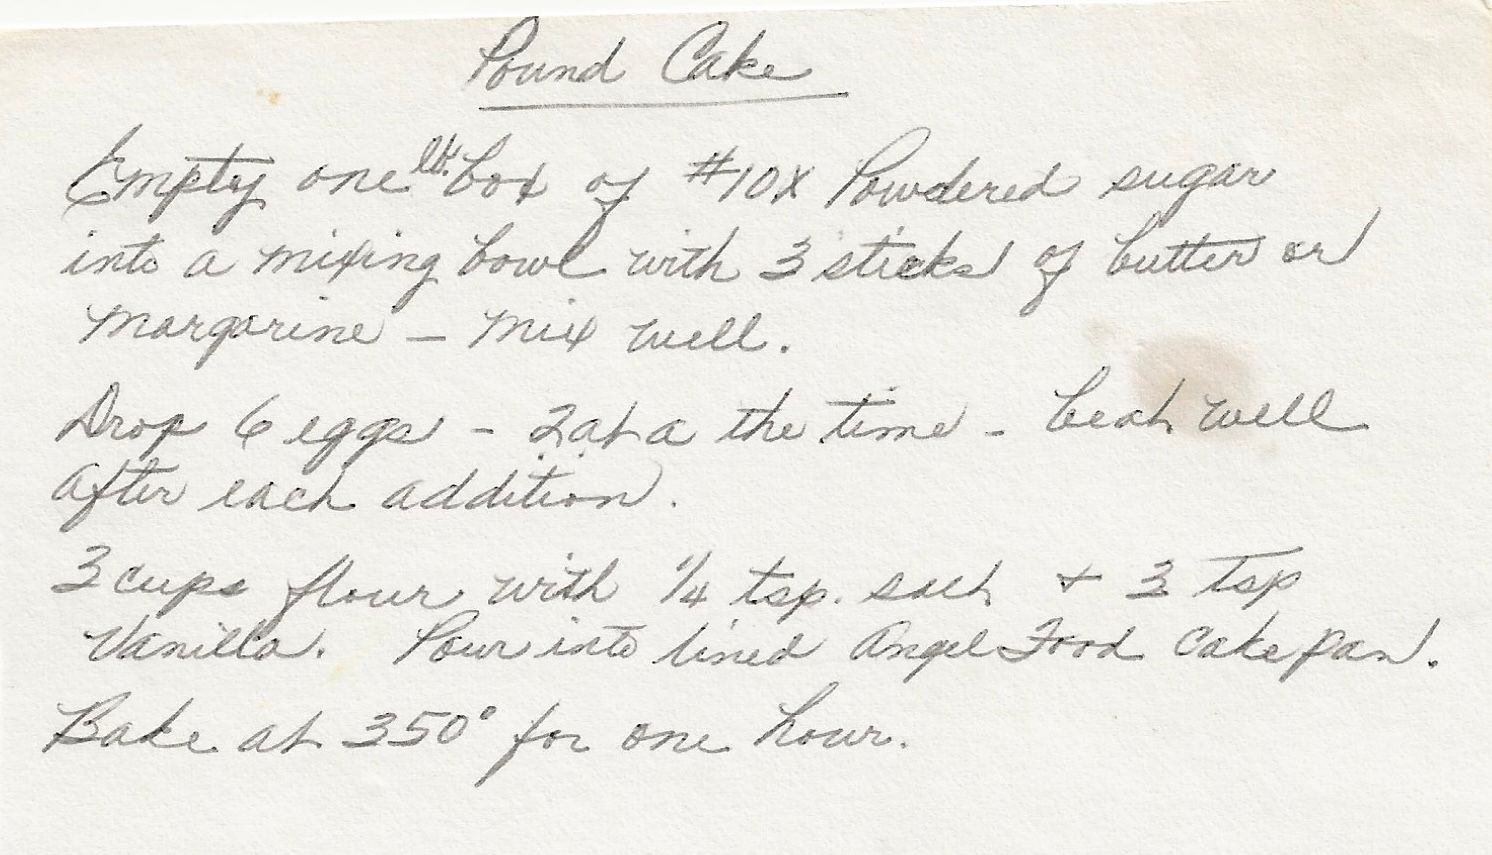 Pound Cake
Empty one lb. box of #10X Powdered sugar
into a mixing bowl with 3 sticks of butter or
margarine – mix well.
Drop 6 eggs – 2 at a the time – beat well
after each addition.
3 cups flour with 1/4 tsp. each + 3 tsp
Vanilla. Pour into lined Angel Food Cake pan.
Bake at 350° for one hour.